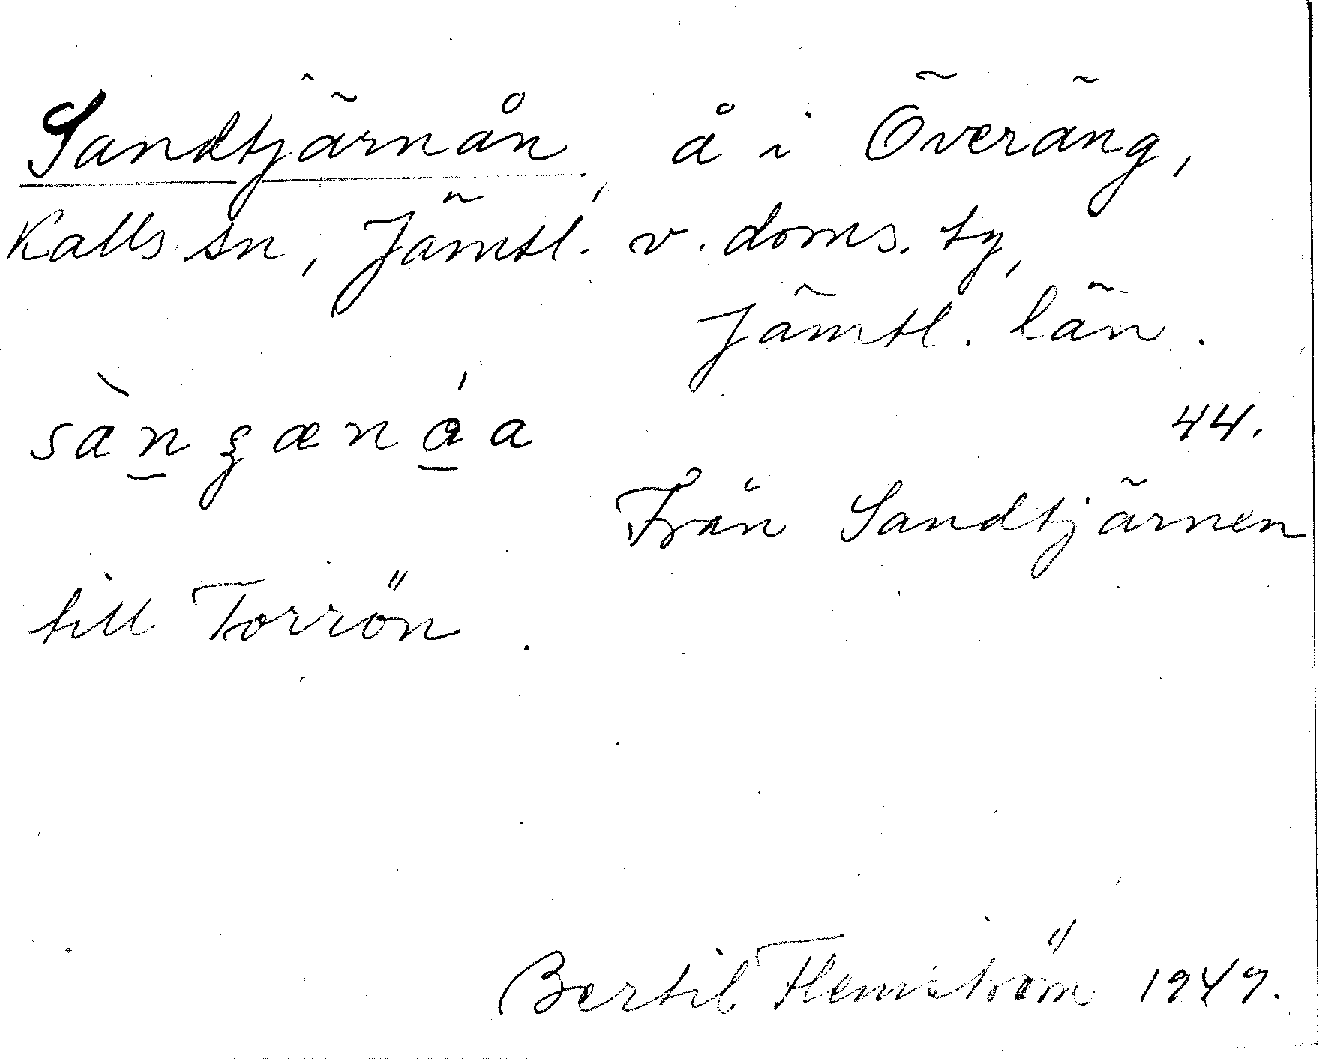 Sandtjärnån, å i Överäng,
Kalls sn, Jämtl. v. doms. tg,
Jämtl. län.
44.
Från Sandtjärnen
till Torrön.
Bertil Flemström 1949.